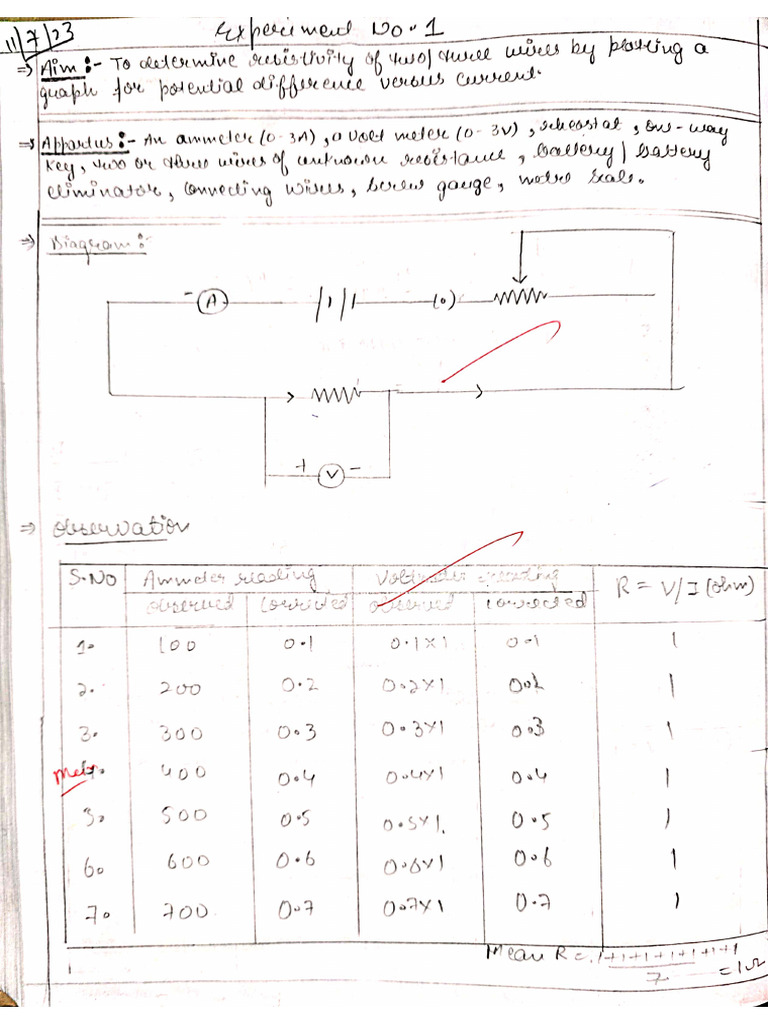 11/7/23
Experiment No. 1
=> Aim :- To determine resistivity of two/three wires by plotting a
graph for potential difference versus current.
=> Appartus :- An ammeter (0-3A), a volt meter (0-3V), rheostat, one-way
key, two or three wires of unknown resistance, battery/battery
eliminator, connecting wires, screw gauge, metre scale.
=> Diagram :-
- A (•)
+ V -
=> Observation
S.NO Ammeter reading Voltmeter reading R = V/I (ohm)
observed corrected observed corrected
1. 100 0.1 0.1x1 0.1 1
2. 200 0.2 0.2x1 0.2 1
3. 300 0.3 0.3x1 0.3 1
400 0.4 0.4x1 0.4 1
5. 500 0.5 0.5x1. 0.5 1
6. 600 0.6 0.6x1 0.6 1
7. 700 0.7 0.7x1 0.7 1
Mean R = 1+1+1+1+1+1+1
7 = 1Ω